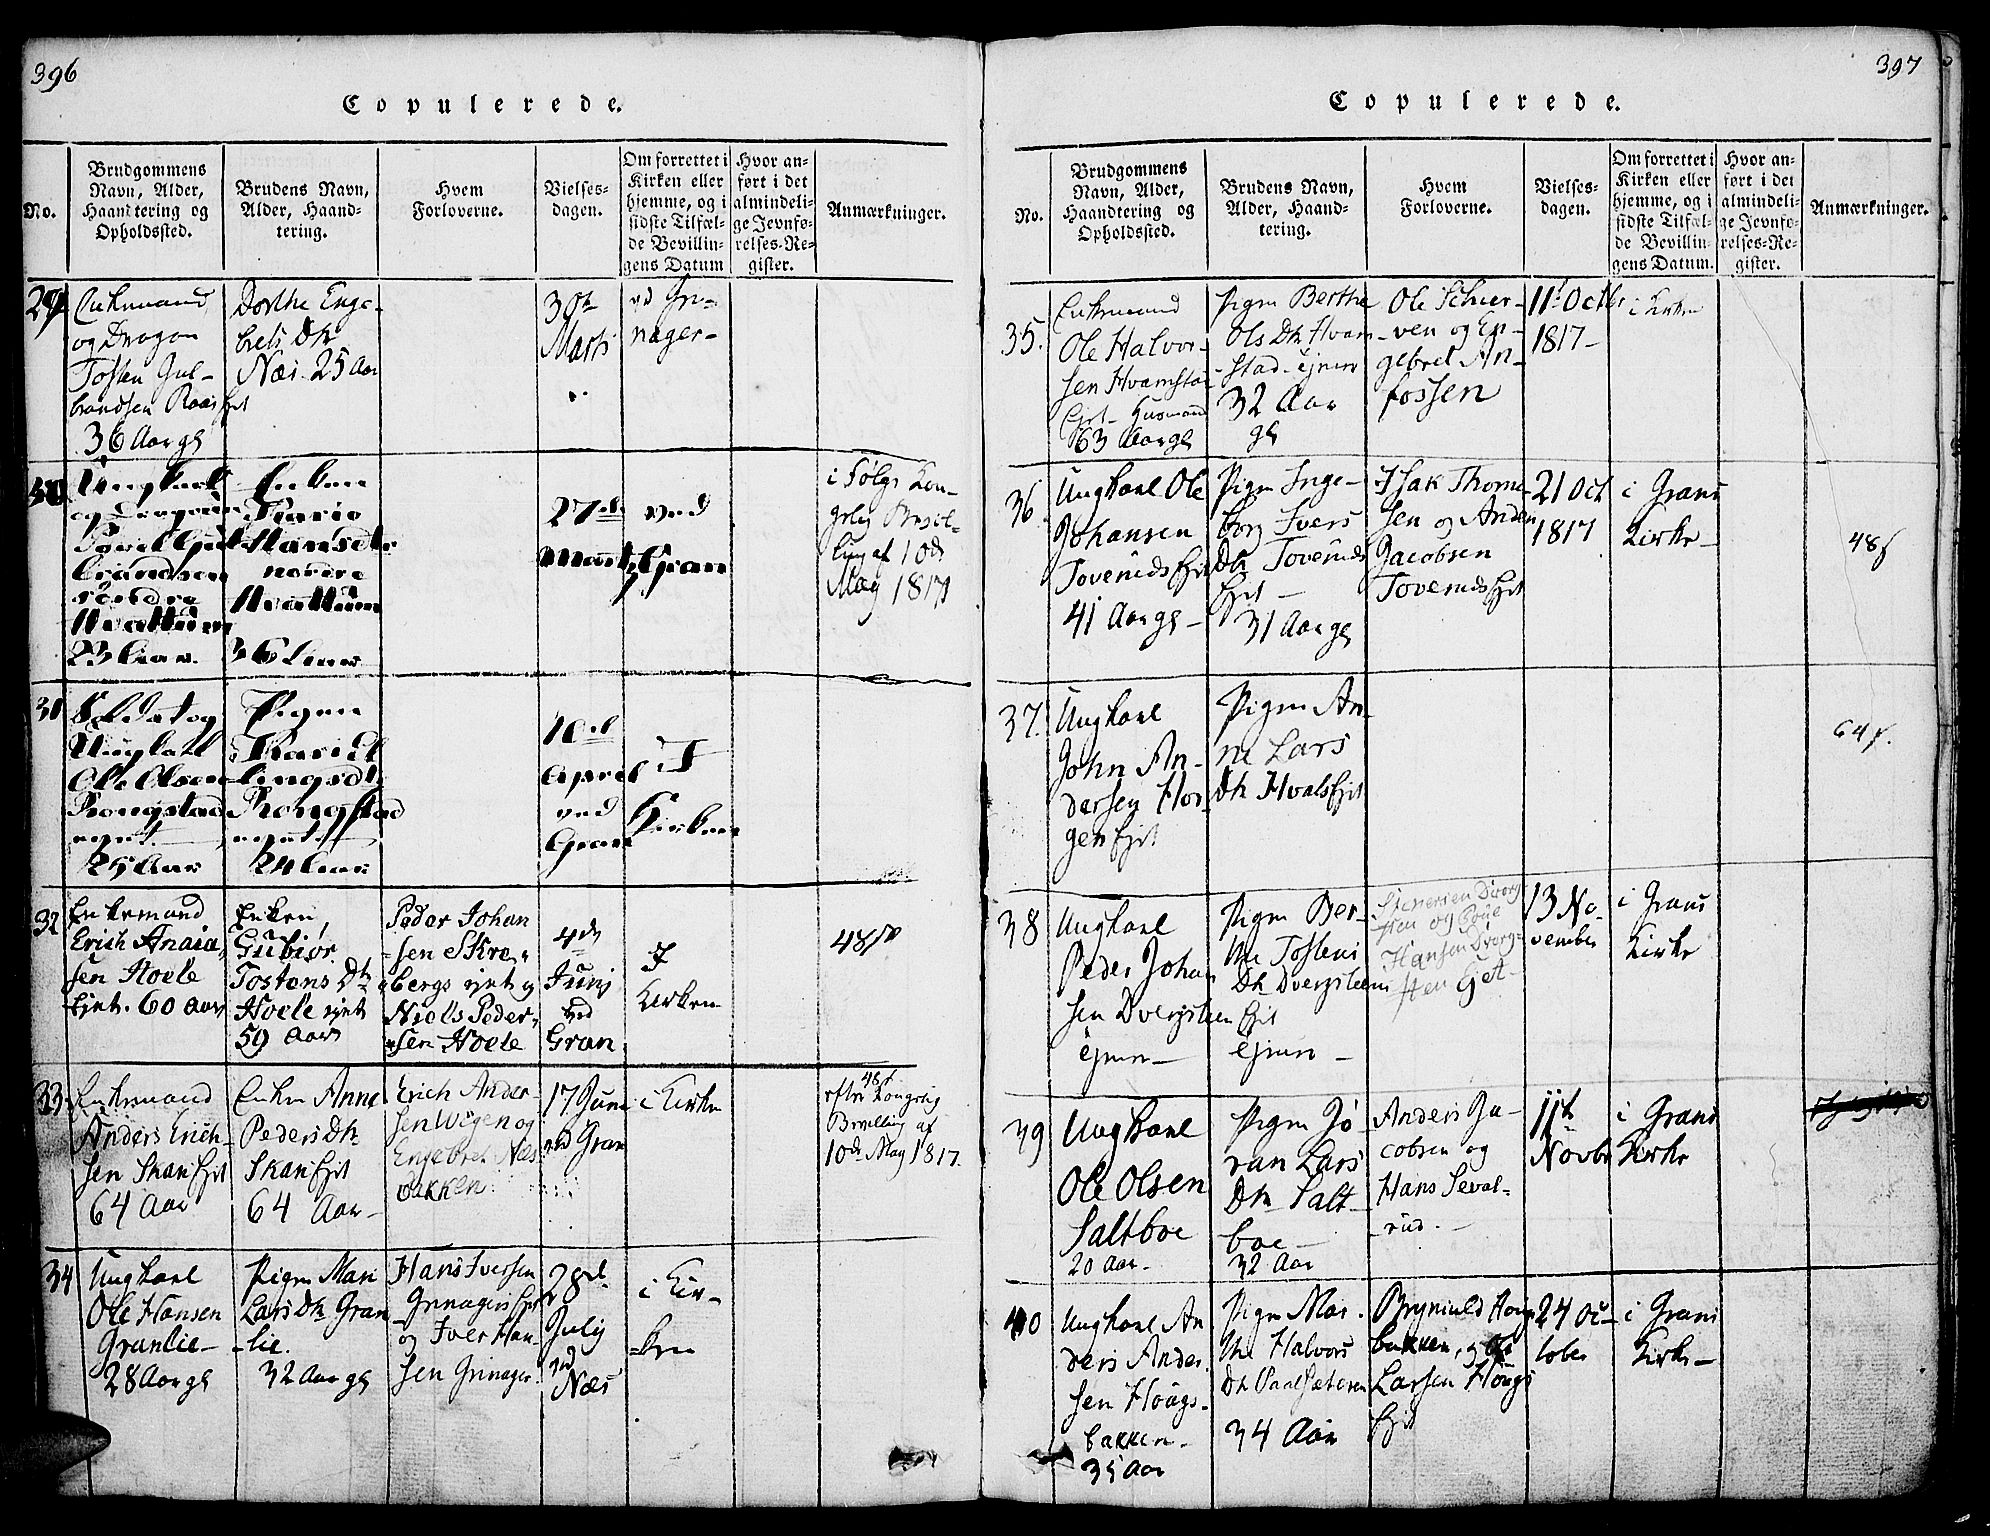 396
Copulerede.
No.
Brudgommens
Navn, Alder,
Haandtering og
Opholdssted.
Brudens Navn,
Alder, Haand-
tering.
Hvem
Forloverne.
Vielses-
dagen.
Om forrettet i
Kirken eller
hjemme, og i
sidste Tilfæl-
de Bevillin-
gens Datum
Hvor an-
ført i det
almindeli-
ge Jevnfø-
relses-Re-
gister.
Anmærkninger.
29
Enkemand
og Dragon
Tosten Gul-
brandsen Raas Ejet
36 Aar gl
Dorthe Enge-
brets Dtr
Næs 25 Aar
30te
Marts
ved
nager-
30
Ungkarl
og
brandsen
søndre
Hvattum
23 Aar.
Enken
Marie
Hansdtr
nordre
Hvattum
36 Aar
27de
Marts
ved
Gran
i Følge Kon-
gelig Bevil-
ling af 10de
May 1817
31
Soldat og
Ungkarl
Ole Olsen
Rongstad
eget.
25 Aar
Pigen
Rongstad
eget.
24 Aar
10de
April
ved
Gran
I
Kirken
32
Enkemand
Erich Anaia-
sen Hoele
Ejet. 60 Aar
Enken,
Gubiør
Tostens Dtr
Hoele ejet
59 Aar
Peder Johan
sen Skre-
bergs ejet og
Niels Peder-
sen Hoele
4de
Junj
ved
Gran
I
Kirken
48
33
Enkemand
Anders Erich-
sen Skan Ejet
64 Aar
Enken Anne
Peders Dtr
Skan Ejet
64 Aar
Erich Ander-
sen Wegen og
Engebret Næs-
bakken
17 Juni
ved Gran
i Kirken
48
efter Kongelig
Bevilling af
10de May 1817.
34
Ungkarl
Ole Hansen
Granlie-
28 Aar gl
Pigen Mari
Lars Dtr Gran
lie.
32 Aar gl
Hans Iversen
Grinagers Ejet
og Iver Han-
sen Grinager
28de
July
ved
Næs
i Kir-
ken
397
Copulerede.
No.
Brudgommens
Navn, Alder,
Haandtering og
Opholdssted.
Brudens Navn,
Alder, Haand-
tering.
Hvem
Forloverne.
Vielses-
dagen.
Om forrettet i
Kirken eller
hjemme, og i
sidste Tilfæl-
de Bevillin-
gens Datum.
Hvor an-
ført i det
almindeli-
ge Jevnfø-
relses-Re-
gister.
Anmærkninger.
35.
Enkemand
Ole Halvor-
sen Hvamstad
Ejet Husmand
63 Aar gl
Pigen Berthe
Ols Dtr Hvam-
stad-ejen
32 Aar
gl
Ole Schier-
ven og En-
gebret An-
fossen
11te Octbr
1817-
i Kirken
36.
Ungkarl Ole
Johansen
Toveruds Ejet
41 Aar gl-
Pigen Inge-
borg Ivers
Dtr Toveruds
Ejet-
31 Aar gl
Isak Thome-
sen og Anders
Jacobsen
Toveruds Ejet
21 Oct
1817
i Grans
Kirke-
48
37.
Ungkarl
John An-
dersen Hor-
gen Ejet
Pigen An-
ne Lars
Dtr Hvals Ejet
64
38
Ungkarl
Peder Johan
sen Dvergsteen
Ejen-
Pigen Ber-
the Tostens
Dtr Dvergsteens
Ejet
Ejen-
Stenersen Dverg-
sten og
Hansen Dverg-
sten Ejet-
13 No-
vember
i Grans
Kirke
39
Ungkarl
Ole Olsen
Saltboe
20 Aar.
Pigen Jø-
ran Lars
Dtr Salt-
boe-
32 Aar
Anders Ja-
cobsen og
Hans Seval-
rud.-
11te
Novbr
i Grans
Kirke
40
Ungkarl An
ders Ander
sen Hougs-
bakken-
35 Aar
Pigen Mar-
the Halvors
Dtr Paalsæteren
34 Aar
Bryniuld Houg-
bakken, og
Larsen Hougs
Ejet
24 Oc-
tober
i Grans
Kirke-